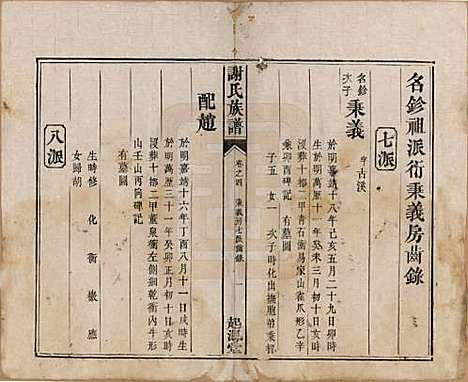 名鉁祖派衍秉義房齒錄
七派
名鉁次子
秉義
字古溪
於明嘉靖十八年己亥五月二十九日卯時
於明萬歷十九年辛卯三月初十日
沒葬十都二甲青石衝易家山雀爪形乙辛
乘卯酉碑記
有墓圖
子五
女一
次子時化出撫胞弟秉
謝氏族譜
卷之四
秉義房七派齒錄
一
起鳳堂
配趙
於明嘉靖十六年丁酉八月十一日戌時生
於明萬歷三十一年癸卯正月初十日亥時
沒葬十都二甲藍泉衝左側銅乾衝內牛形
山壬山丙向碑記
有墓圖
八派
生時修
化
衡
徽
應
女歸胡